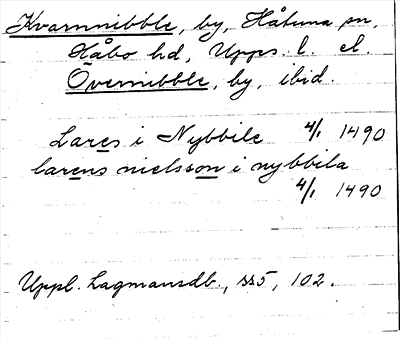 Kvarnnibble, by, Håtuna sn,
Håbo hd, Upps. l. el.
Övernibble, by, ibid.
Lares i Nybbile 4/1 1490
larens nielsson i nybbila
4/1 1490
Uppl. Lagmansdb., ss5, 102.